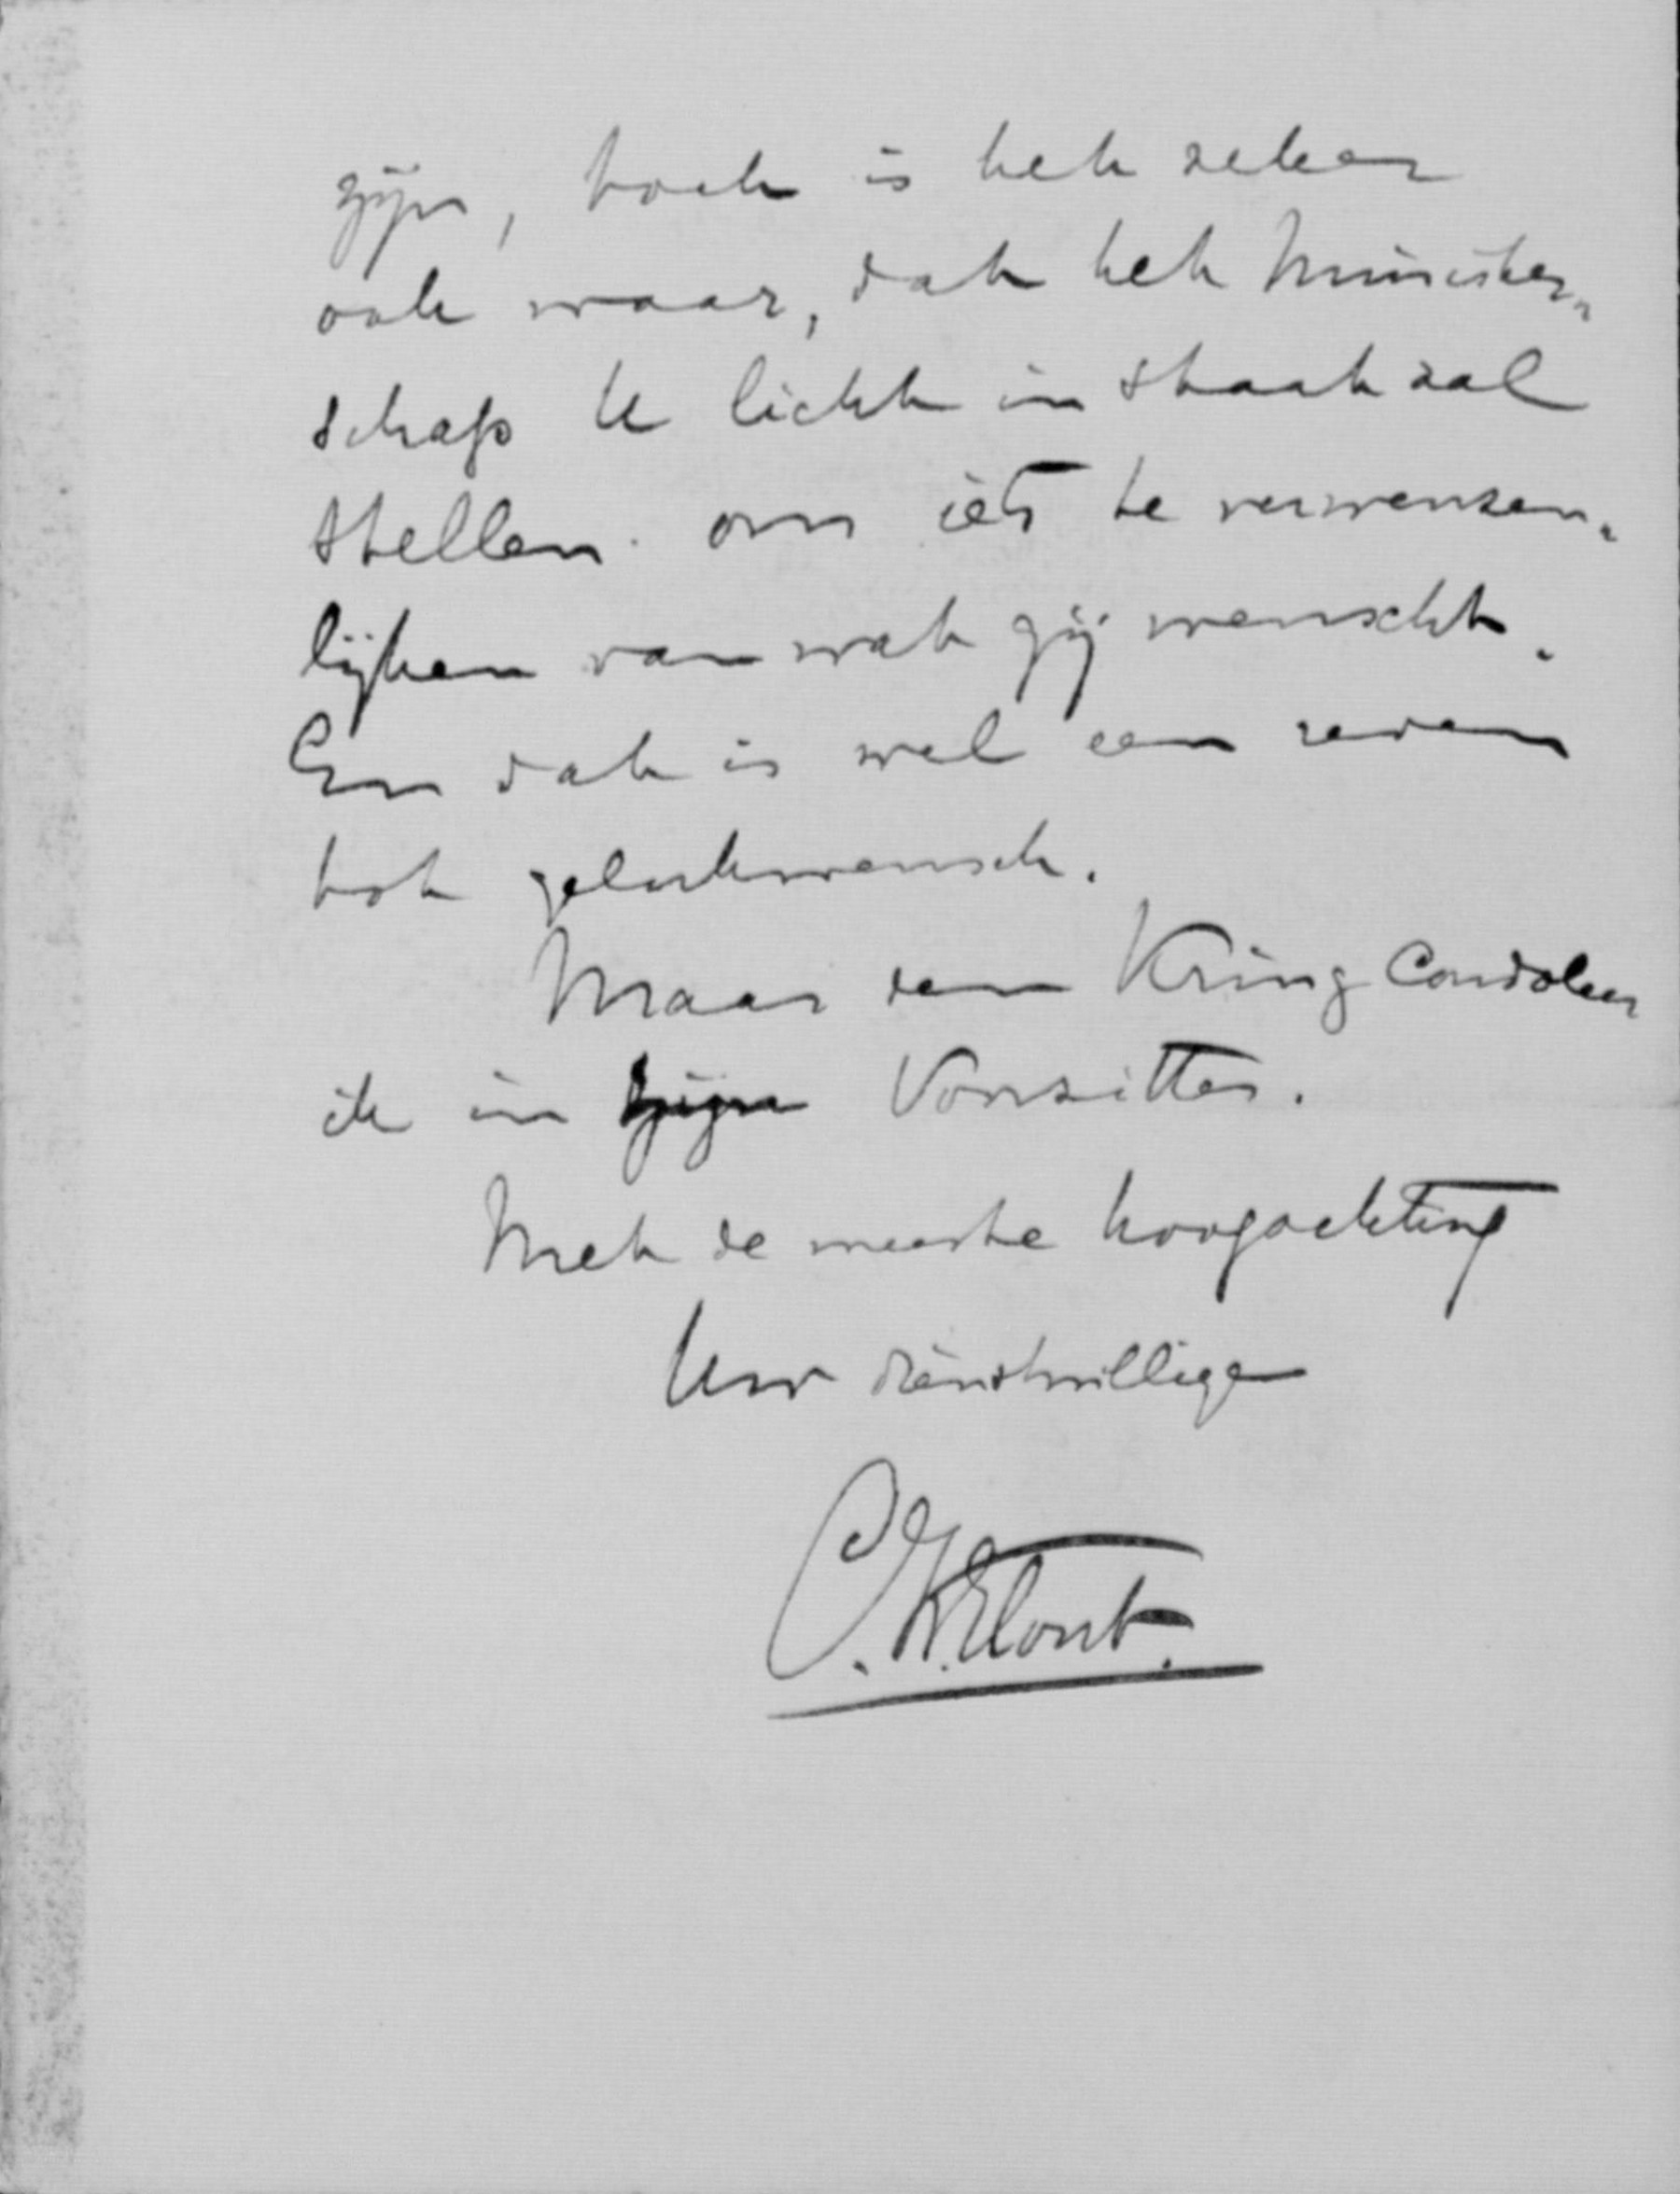 zijn, toch is het zeker
ook waar, dat het Minister-
schap U licht in staat zal
stellen om iets te verwezen-
lijken van wat gij wenscht.
En dat is wel een reden
tot gelukwensch.
Maar den Kring Condoleer
ik in zijn Voorzitter.
Met de meeste hoogachting
Uw dienstwillige
C.K. Elout.